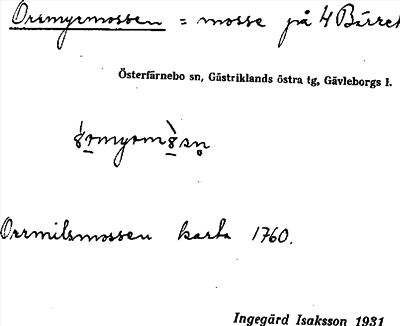 Orrmyrmossen = mosse på 4 Bärret
Österfärnebo sn, Gästriklands östra tg, Gävleborgs l.
Orrmilsmossen karta 1760.
Ingegärd Isaksson 1931